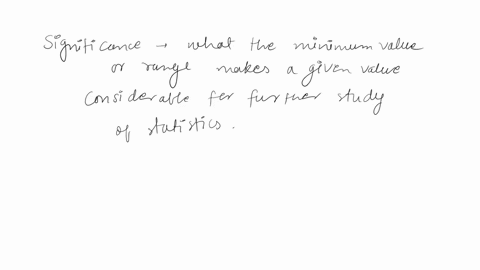 Significance → what the minimum value
or range makes a given value
considerable for further study
of statistics.